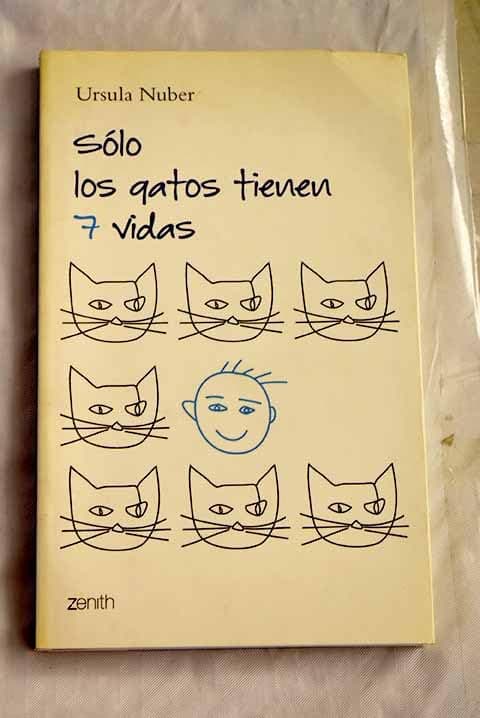 Ursula Nuber
Sólo
los gatos tienen
7 vidas
zenith